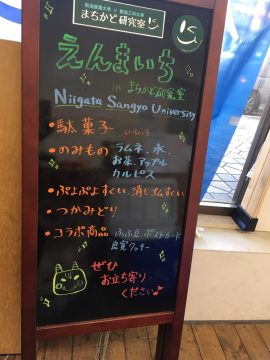 新潟産業大学 × 新潟工科大学
まちかど研究室
えんまいち
in まちかど研究室
Niigata Sangyo University
・駄菓子 いろいろ
・のみもの ラムネ、水、
お茶、アップル
カルピス
・ぷよぷよすくい・消しゴムすくい
・つかみどり
・コラボ商品 ふふ豆、ポストカード
昆虫クッキー
ぜひ
お立ち寄り
ください♪